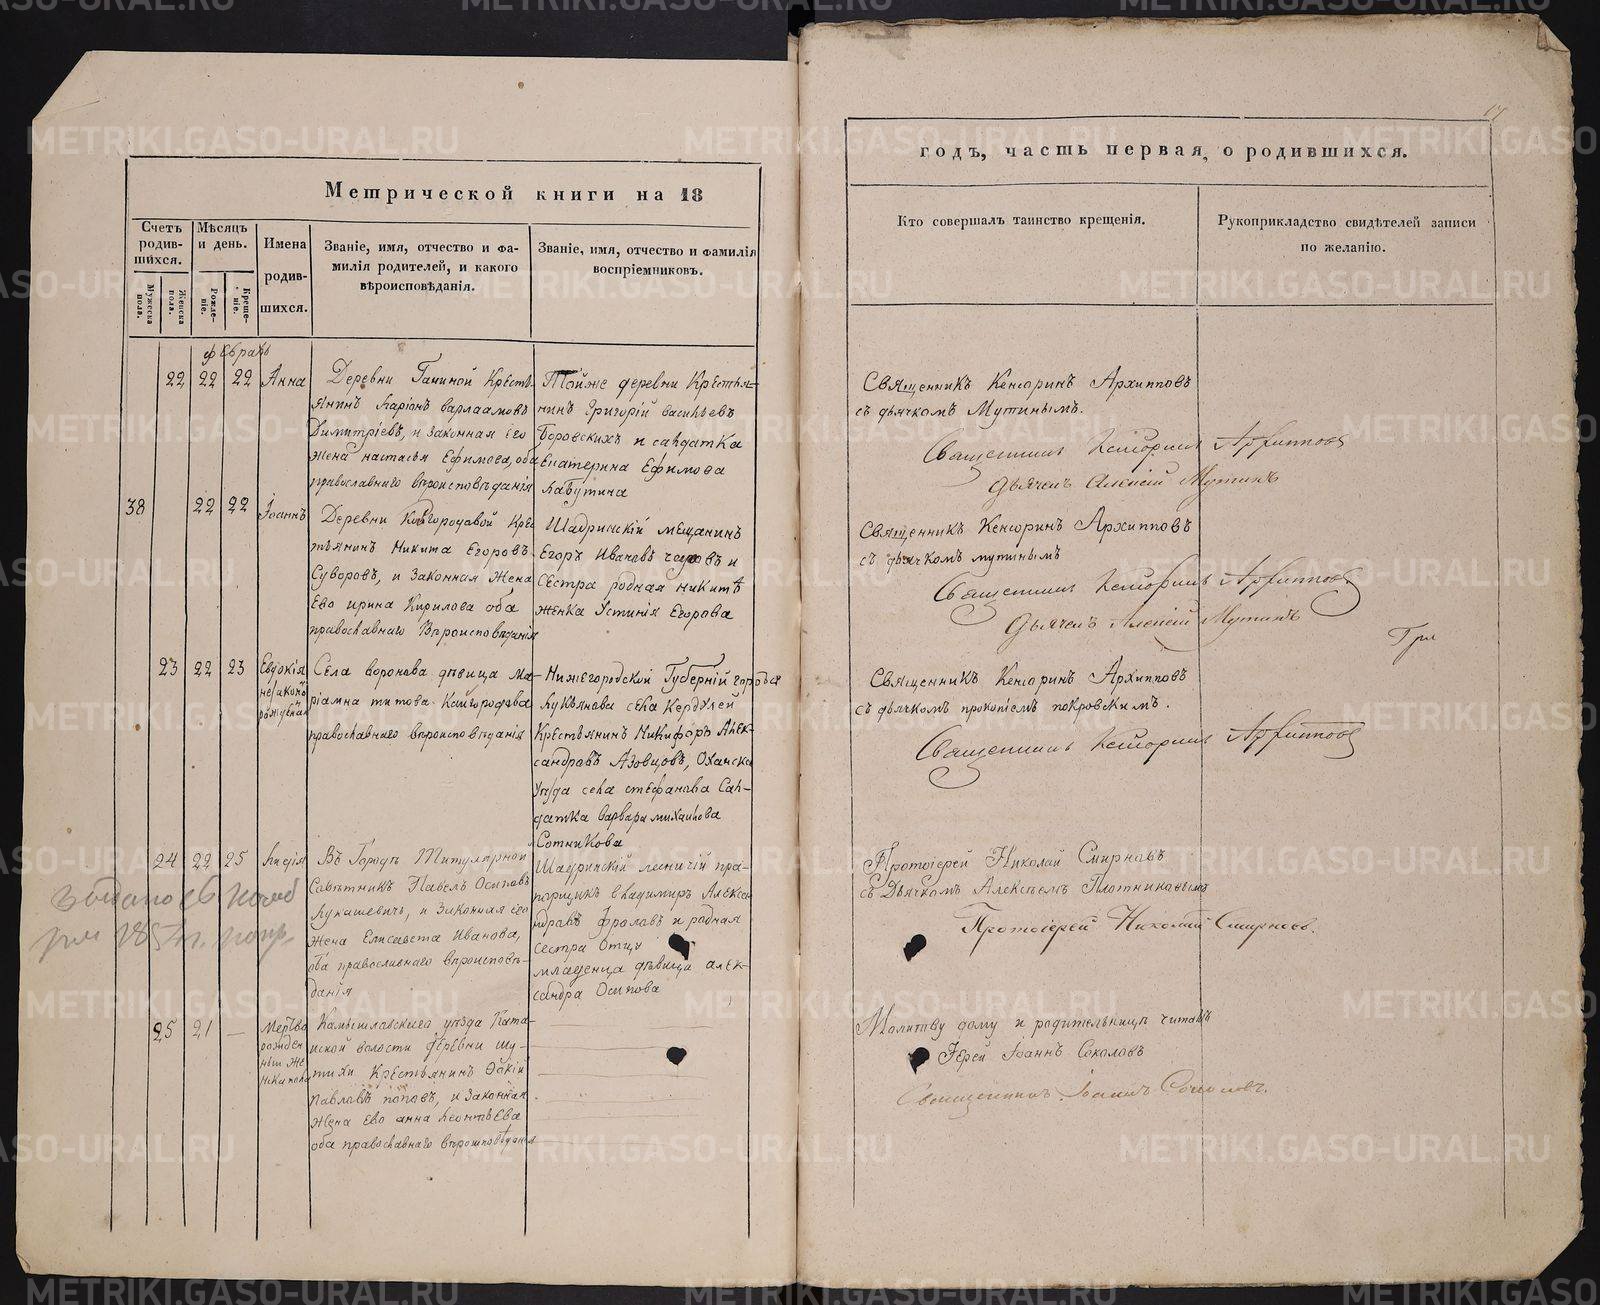 Метрической книги на 18
Счетъ родив-шихся.
Мѣсяцъ и день.
Имена родив-шихся.
Званіе, имя, отчество и фа-
милія родителей, и какого
вѣроисповѣданія.
Званіе, имя, отчество и фамилія
воспріемниковъ.
Мужеска пола.
Женска пола.
Рожде-ніе.
Креще-ніе.
февраль
22 22 22 Анна
Деревни Крестъ-
янинъ Ларіонъ варлаамовъ
Димитріевъ, и законная его
жена настасья Ефимова, оба
православнаго вѣроисповѣданія
Тойже деревни Крестья-
нинъ Григорій васильевъ
Боровскихъ и салдатка
Екатерина Ефимова
Лабутина
38 22 22 Іоаннъ
Деревни Крес
тьянинъ Никита Егоровъ
Суворовъ, и Законная Жена
Ево ирина Кирилова оба
православнаго Вѣроисповѣданія
Шадринскій мещанинъ
Егоръ Ивановъ и
Сестра родная никитѣ
женка Устинія Егорова
23 22 23 Евдокія
незакон
рожденная
Села воронова дѣвица Ма-
ріамна титова Кайгородова
православнаго вѣроисповѣданія
Нижегородской Губерній города
Лукьянова села
Крестьянинъ Никифоръ Алек-
сандравъ Азовцовъ, Оханска
уѣзда села стефанава Сал-
датка варвара михаилова
Сотникова
24 22 25 Лидія
Въ Городѣ Титулярной
Савѣтникъ Павелъ Осиповъ
Лукашевичь, и Законная его
жена Елисавета Иванова,
оба православнаго вѣроисповѣ-
данія
Шадринскій лесничій пра-
порщикъ владимиръ Алекса-
ндравъ Фролавъ и родная
сестра Отцу
младенца дѣвица алек-
сандра Осипова
25 21 — Мертво
рожден
ный же
нска пола
Камышловскаго уѣзда Ката-
йской волости деревни шу-
тихи Крестьянинъ
Павлавъ поповъ, и Законная
Жена Ево анна Леонтьева
оба православнаго вѣроисповѣданія
годъ, часть первая, о родившихся.
Кто совершалъ таинство крещенія.
Рукоприкладство свидѣтелей записи
по желанію.
17
Священникъ Кенсоринъ Архипповъ
съ дьячкомъ Мутинымъ.
Священникъ Кенсоринъ Архипповъ
Дьячекъ Алексій Мутинъ
Священникъ Кенсоринъ Архипповъ
съ дьячкомъ мутинымъ
Священникъ Кенсоринъ Архипповъ
Дьячекъ Алексій Мутинъ
Священникъ Кенсоринъ Архипповъ
съ дьячкомъ прокопіемъ покровскимъ.
Священникъ Кенсоринъ Архипповъ
Протоіерей Николай Смирнавъ
съ Дьячкомъ Алексѣемъ Плотниковымъ
Протоіерей Николай Смирновъ.
Молитву дому и родительницѣ читавъ
Іерей Іоаннъ Соколавъ
Священникъ Іоаннъ Соколовъ.
METRIKI.GASO-URAL.RU